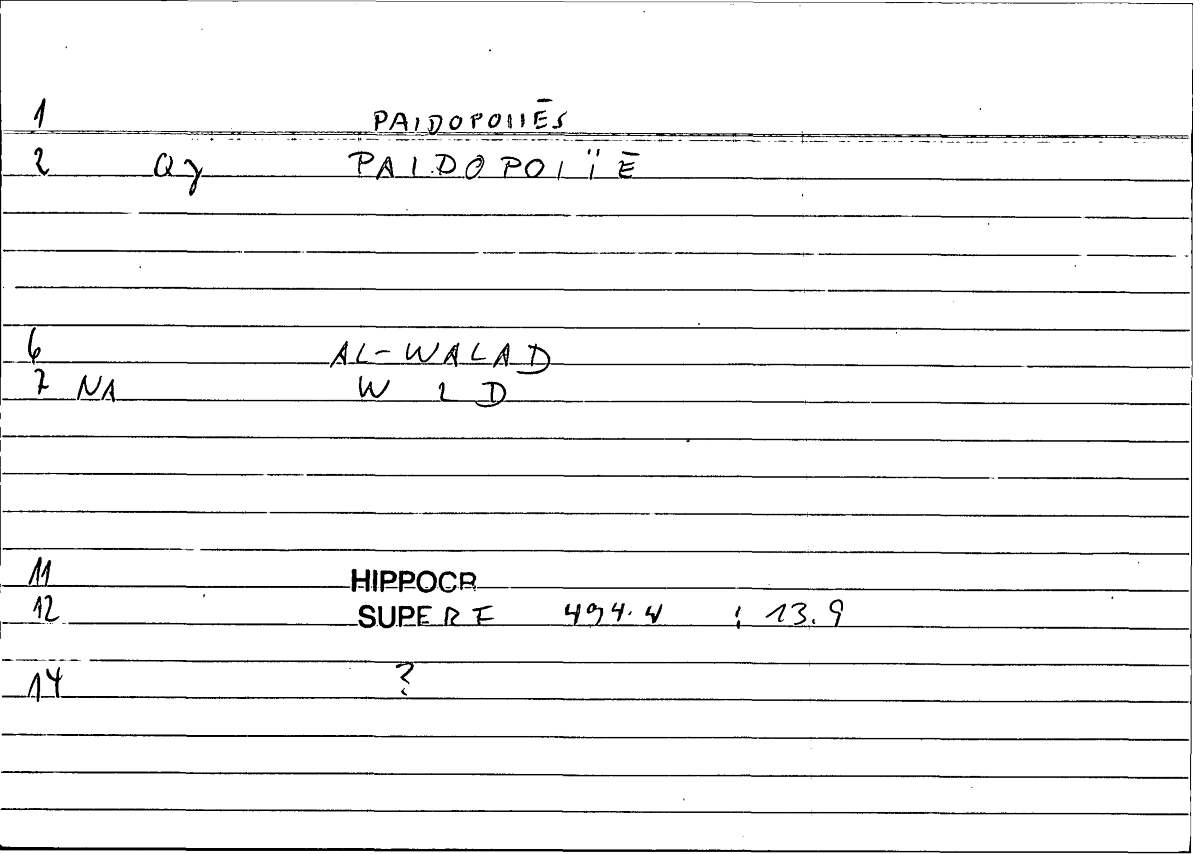 1 PAIDOPOIIĒS
2 Qγ PAIDOPOIÏĒ
6 AL-WALAD
7 NA W L D
11 HIPPOCR
12 SUPERF 494.4 ; 13.9
14 ?